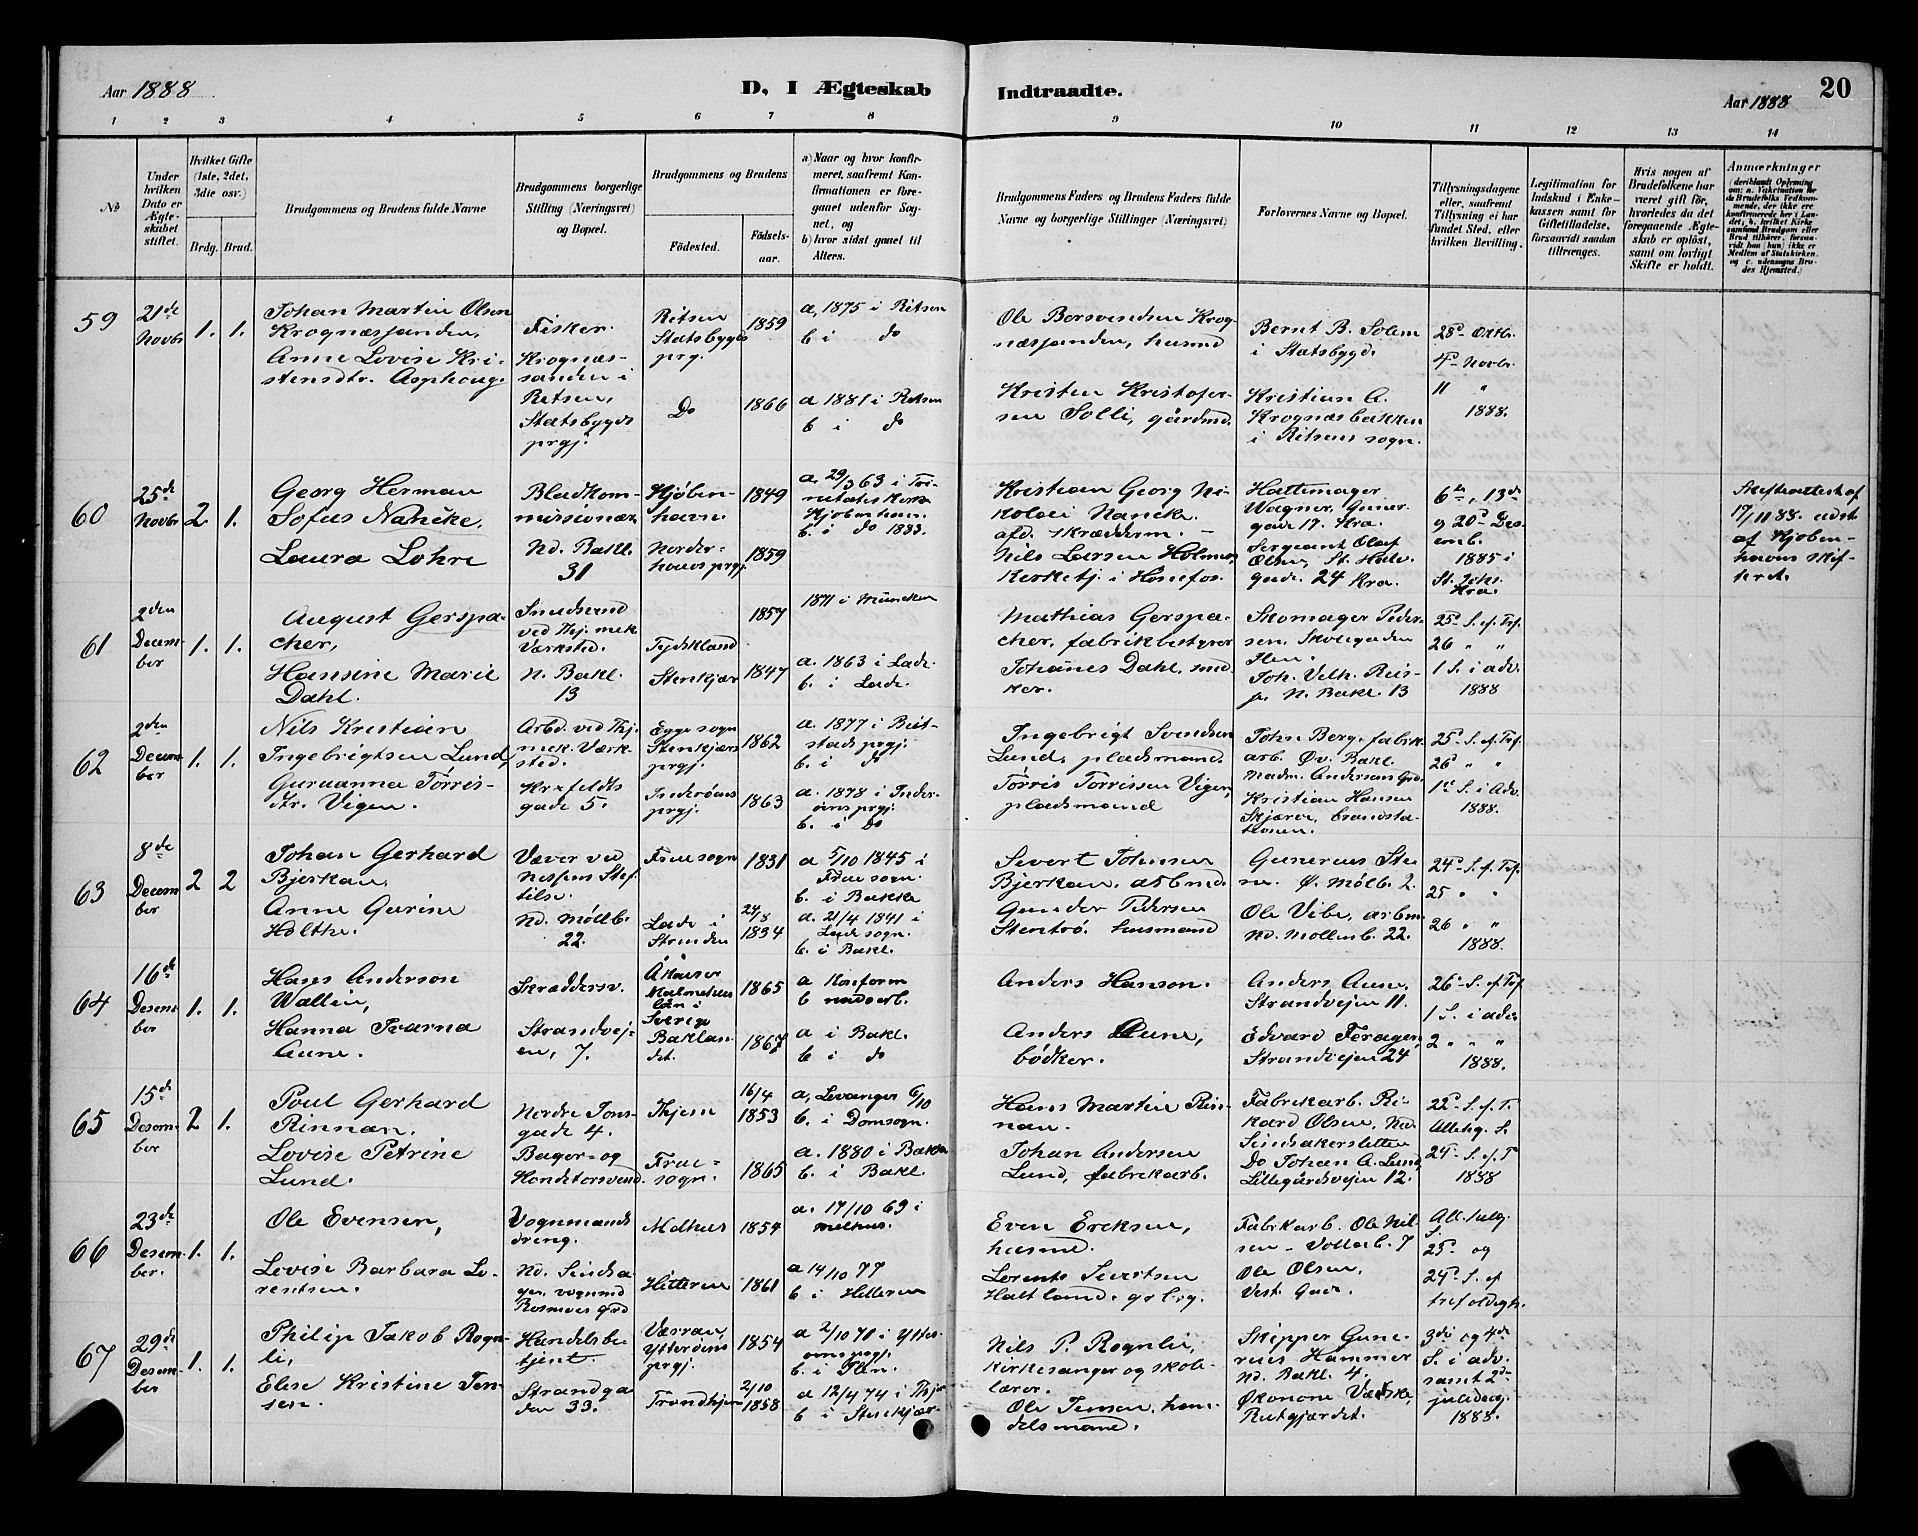 Aar 1888
D. I Ægteskab
Indtraadte.
Aar 1888
20
1 2 3 4 5 6 7 8 9 10 11 12 13 14
No
Under hvilken Dato er Ægteskabet stiftet.
Hvilket Gifte (1ste, 2det, 3die osv.)
Brdg. Brud.
Brudgommens og Brudens fulde Navne
Brudgommens borgerlige Stilling (Næringsvei) og Bopæl.
Brudgommens og Brudens
Fødested.
Fødselsaar.
a) Naar og hvor konfirmeret, saafremt Konfirmationen er foregaaet udenfor Sognet, og
b) hvor sidst gaaet til Alters.
Brudgommens Faders og Brudens Faders fulde Navne og borgerlige Stillinger (Næringsvei)
Forlovernes Navne og Bopæl.
Tillysningsdagene eller, saafremt Tillysning ei har fundet Sted, efter hvilken Bevilling.
Legitimation for Indskud i Enkekassen samt for Giftetilladelse, forsaavidt saadan tiltrænges.
Hvis nogen af Brudefolkene har været gift før, hvorledes da det foregaaende Ægteskab er opløst, samt om lovligt Skifte er holdt.
Anmærkninger
59
21de Novbr
1. 1.
Johan Martin Olsen
Krognæssanden,
Anne Lovise Kristensdtr. Asphoug.
Fisker.
Krognæssanden i
Ritsen,
Statsbygds
prgj.
Ritsen
Statsbygds
prg.
Do
1859
1866
a, 1875 i Ritsen
b i do
a 1881 i Ritsen
b i do
Ole Borsvendsen Krognæssanden, husmd
Kristen Kristofersen Solli, gårdmd.
Bernt B. Solem
i Statsbygd.
Kristian A.
Krognæsbakken
i Ritsens sogn.
28d Oktbr.
4d Novbr.
11 "
1888.
60
25de Novbr
2 1.
Georg Herman
Sofus Nancke.
Laura Lohre
Bladkommissionær
Nd. Bakl.
31
Kjøbenhavn.
Norderhovs prgj.
1849
1859
a. 29/3 63 i Trinitatis kirke
Kjøbenhavn.
b. i do 1888.
Kristian Georg Nikolai Nancke.
afd. skrædderm.
Nils Larsen Holmen,
Kirketj. i Hønefos.
Hattemager
Wagner, Gunergade 17. Kra.
Sergeant Olaf
Olsen, St. Halv.
gade. 24 Kra.
6te, 13de
og 20d Desemb.
1885 i
St. Joh.
Kra.
Skifteattest af
17/11 88. udst.
af Kjøbenhavns Skifteret.
61
2den December
1. 1.
August Gerspacher,
Hansine Marie
Dahl.
Smedsvend
ved Thj. mek.
Værksted.
N. Bakl.
13
Tydskland
Stenkjær
1857
1847
1871 i München
a. 1863 i Lade.
b. i Lade.
Mathias Gerspacher, fabrikbestyrer
Johanes Dahl, snedker.
Skomager Pedersen, Skolegaden
Ilen.
Joh. Vilh. Reisp. N. Bakl. 13
25d S. ef. Tref.
26 " "
1 S. i adv.
1888
62
2den December
1. 1.
Nils Kristian
Ingebrigtsen Lund,
Guruanna Tørrisdtr. Vigen.
Arbd. ved Thj.
mek. Værksted.
Krefeldts
gade 5.
Egge sogn
Stenkjærs
prgj.
Inderøens
prgj.
1862
1863
a. 1877 i Beitstads prgj.
b. i do
a. 1878 i Inderøens prgj.
b. i Do
Ingebrigt Svendsen
Lund, pladsmand.
Tørris Tørrissen Vigen,
pladsmand
John Berg, fabrikarb. Øv. Bakl.
Madm. Andersens Grd.
Kristian Hansen
Skjærer, brandstationen.
25d S. ef. Tref.
26d " "
1ste S. i Adv.
1888.
63
8de December
2 2
Johan Gerhard
Bjerkan,
Anne Gurine
Holthe.
Væver ved
Nissens Stiftelse.
Nd. Møllb.
22.
Frue sogn
Lade i
Strinden
1831
24/8 1834
a 5/10 1845 i
Frue sogn.
b. i Bakke
a. 21/4 1841 i
Lade sogn.
b. i Bakl.
Sivert Johnsen
Bjerkan, arbmd.
Gunder Pedersen
Stentrø. husmand
Gunerus Sten. Ø. Møllb. 2.
Ole Vibe, arbm
Nd. Mollenb. 22.
24d S. ef. Tref.
25 " "
26 " "
1888.
64
16de Desember
1. 1.
Hans Anderson
Wallin,
Hanna Ivarna
Aune.
Skrædersv.
Strandvejen, 7.
Malmöhus
län i
Sverige
Baklandet.
1865
1867
a Konform
b nadverb.
a i Bakl.
b i do
Anders Hanson.
Anders Aune,
bødker.
Anders Aune,
Strandvejen 11.
Edvard Foragen,
Strandvejen 24
26d S. ef. Tref.
1 S. i adv.
2 " " "
1888.
65
15de Desember
2 1.
Poul Gerhard
Rinnan.
Lovise Petrine
Lund.
Nordre Tonsgade 4.
Bager- og
Konditorsvend.
Thjem
Fruesogn.
16/4 1853
1865
a, Levanger 6/10
b. i Domsogn.
a. 1880 i Bakke
b. i Bakl.
Hans Martin Rinnan.
Johan Andersen
Lund, fabrikarb.
Fabrikarb. Rikard Olsen, Nd.
Sindsakersletten
Do Johan A. Lund,
Lillegårdsvejen 12.
22d S. ef. T.
Allehg. S.
24d S. ef. T
1888
66
23de Desember.
1. 1.
Ole Evensen,
Lovise Barbara Lorentsen.
Vognmandsdreng.
Nd. Sindsager, vognmd
Rosmoes grd
Melhus
Hitteren
1854
1861
a. 17/10 69 i
Melhus.
a 14/10 77
b i Hitteren
Even Ericksen,
husmd.
Lorents Sivertsen
Haltland. grbrg.
Fabrikarb. Ole Nilsen - Vollarb. 7
Ole Olsen,
Vest. Gade.
All. helg.
S.
23d og
24d S. ef
trefoldigh.
67
29de Desember
1. 1.
Philip Jakob Rognli,
Elise Kristine Jensen.
Handelsbetjent.
Strandgaden 33.
Værran,
Ytterøens
prgj.
Trondhjem
1854
2/10 1858
a 2/10 70 i Ytterøens prgj.
b. i Ilen.
a 12/4 74 i Thjem
b i Stenkjær
Nils P. Rognlie,
kirkesanger og skolelærer.
Ole Jensen, handelsmand.
Skipper Gunerius Hammer
Nd. Bakl. 4.
Økonom Vædske,
Rutgjærdet.
3die og 4de
S. i adv.
samt 2d
juledag.
1888.